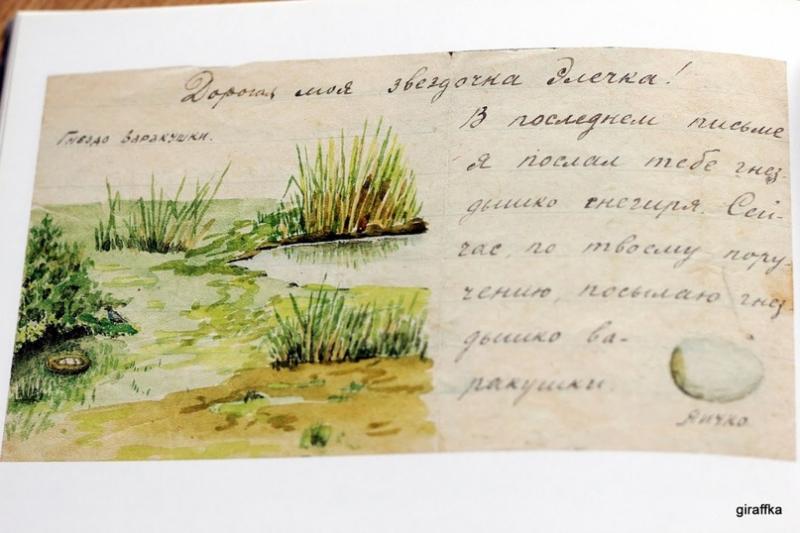 Дорогая моя звездочка Элечка!
Гнездо варакушки.
В последнем письме
я послал тебе гнез-
дышко снегиря. Сей-
час, по твоему пору-
чению, посылаю гнез
дышко ва-
ракушки.
Яичко
giraffka